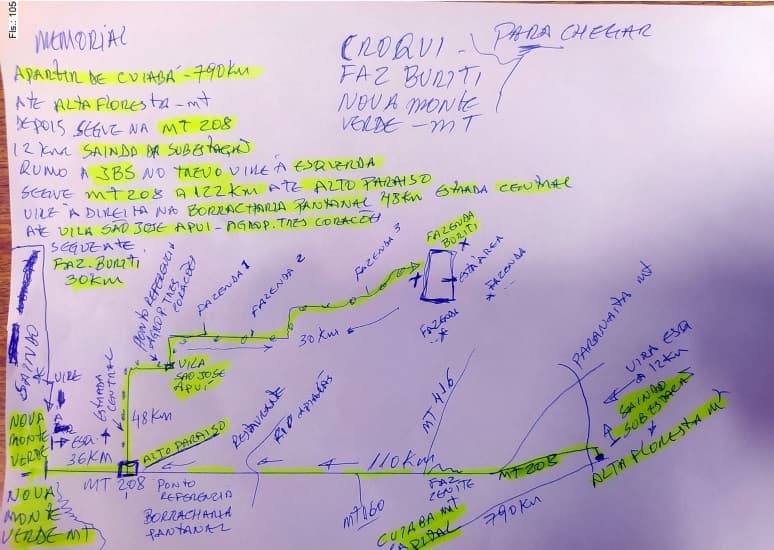 Fls.: 105
MEMORIAL
CROQUI - PARA CHEGAR
FAZ BURITI
NOVA MONTE
VERDE - MT
APARTIR DE CUIABÁ - 790Km
ATÉ ALTA FLORESTA - MT
DEPOIS SEGUE NA MT 208
12 Km SAINDO DA SUBESTAÇÃO
RUMO A JBS NO TREVO VIRE À ESQUERDA
SEGUE MT 208 A 122Km ATÉ ALTO PARAISO
VIRE A DIREITA NA BORRACHARIA PANTANAL 48Km ESTRADA CENTRAL
ATÉ VILA SÃO JOSE APUI - AGROP. TRES CORAÇÕES
SEGUE ATE
FAZ. BURITI
30KM
PONTO REFERENCIA
AGROP. TRES
CORAÇÕES
FAZENDA 1
FAZENDA 2
FAZENDA 3
FAZENDA
BURITI
ESTÁ ÁREA
FAZENDA
FAZENDA
30 Km
SAINDO
VIRE
A
ESQ
ESTRADA
CENTRAL
VILA
SÃO JOSE
APUÍ
48Km
36KM
NOVA
MONTE
VERDE
ALTO PARAISO
RESTAURANTE
RIO APIACÁS
MT 416
PARANAITA MT
VIRA ESQ
A 12Km
SAINDO
SUBESTAÇÃO
ALTA FLORESTA MT
110Km
MT 208
MT 208
PONTO
REFERENCIA
BORRACHARIA
PANTANAL
FAZ
ZENITE
MT 160
790Km
CUIABA MT
CAPITAL
NOVA
MONTE
VERDE MT